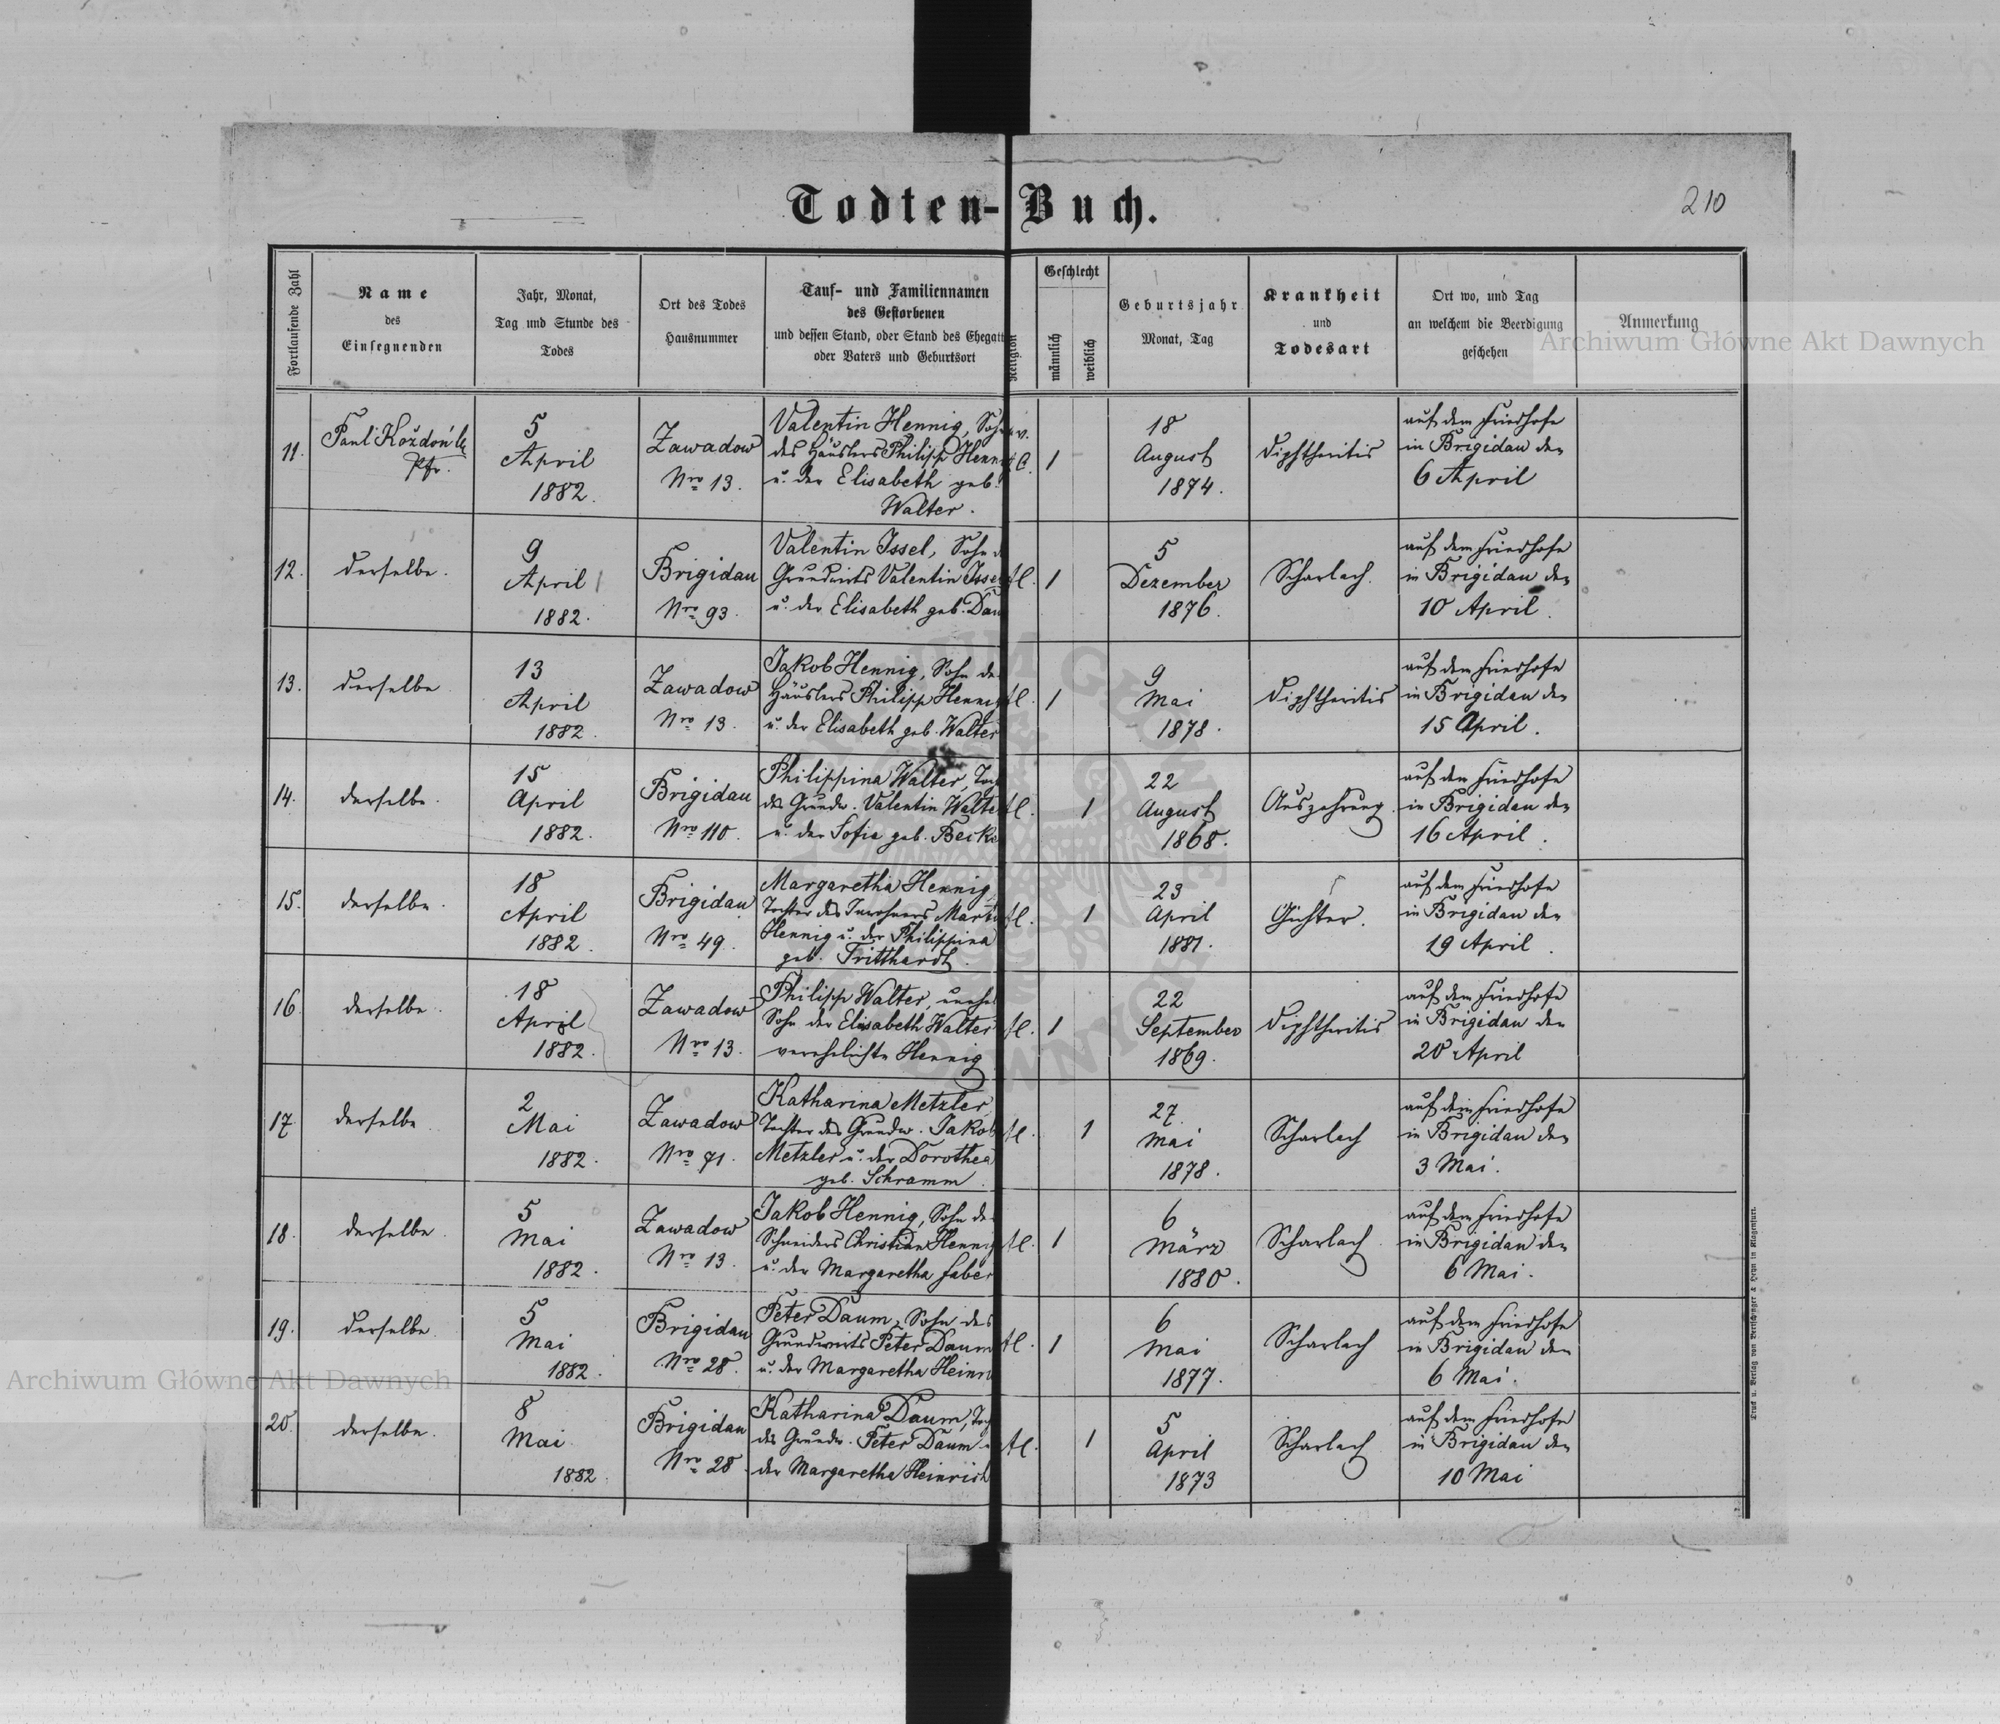 Todten-Buch.
210
Fortlaufende Zahl
Name
des
Einsegnenden
Jahr, Monat,
Tag und Stunde des
Todes
Ort des Todes
Hausnummer
Tauf- und Familiennamen
des Gestorbenen
und dessen Stand, oder Stand des Ehegatt
oder Vaters und Geburtsort
Religion
Geschlecht
männlich
weiblich
Geburtsjahr
Monat, Tag
Krankheit
und
Todesart
Ort wo, und Tag
an welchem die Beerdigung
geschehen
Anmerkung
Archiwum Główne Akt Dawnych
11.
Paul Koždoń
Pfr.
5
April
1882.
Zawadow
Nro 13.
Valentin Hennig, Sohn
des Häuslers Philipp Henni
u. der Elisabeth geb.
Walter.
1
18
August
1874.
Diphtheritis
auf dem Friedhofe
in Brigidau den
6 April
12.
derselbe.
9
April
1882.
Brigidau
Nro 93.
Valentin Issel, Sohn d
Grundwirts Valentin Issel
u. der Elisabeth geb. Dau
1
5
Dezember
1876.
Scharlach.
auf dem Friedhofe
in Brigidau den
10 April.
13.
derselbe
13
April
1882.
Zawadow
Nro 13.
Jakob Hennig, Sohn de
Häuslers Philipp Hennig
u. der Elisabeth geb. Walter
1
9
Mai
1878.
Diphtheritis
auf dem Friedhofe
in Brigidau den
15 April.
14.
derselbe.
15
April
1882.
Brigidau
Nro 110.
Philippina Walter, Toch
des Grundw. Valentin Walte
u. der Sofia geb. Becke
1
22
August
1868.
Auszehrung.
auf dem Friedhofe
in Brigidau den
16 April.
15.
derselbe.
18
April
1882.
Brigidau
Nro 49.
Margaretha Hennig,
Tochter des Inwohners Marti
Hennig u. der Philippina
geb. Tritthardt.
1
23
April
1881.
Gichter.
auf dem Friedhofe
in Brigidau den
19 April.
16.
derselbe.
18
April
1882.
Zawadow
Nro 13.
Philipp Walter, unehel
Sohn der Elisabeth Walter
verehelichte Hennig
1
22
September
1869.
Diphtheritis
auf dem Friedhofe
in Brigidau den
20 April
17.
derselbe
2
Mai
1882.
Zawadow
Nro 71.
Katharina Metzler,
Tochter des Grundw. Jakob
Metzler u. der Dorothea
geb. Schramm.
1
27.
Mai
1878.
Scharlach
auf dem Friedhofe
in Brigidau den
3 Mai.
18.
derselbe.
5
Mai
1882.
Zawadow
Nro 13.
Jakob Hennig, Sohn de
Schneiders Christian Hennig
u. der Margaretha Faber
1
6
März
1880.
Scharlach
auf dem Friedhofe
in Brigidau den
6 Mai.
19.
derselbe
5
Mai
1882.
Brigidau
Nro 28.
Peter Daum, Sohn des
Grundwirts Peter Daum
u. der Margaretha Heinri
1
6
Mai
1877.
Scharlach
auf dem Friedhofe
in Brigidau den
6 Mai.
20.
derselbe.
8
Mai
1882.
Brigidau
Nro 28
Katharina Daum, Toch
des Grundw. Peter Daum u
der Margaretha Heinrich
1
5
April
1873
Scharlach
auf dem Friedhofe
in Brigidau den
10 Mai
Druck u. Verlag von Bertschinger & Heyn in Klagenfurt.
Archiwum Główne Akt Dawnych